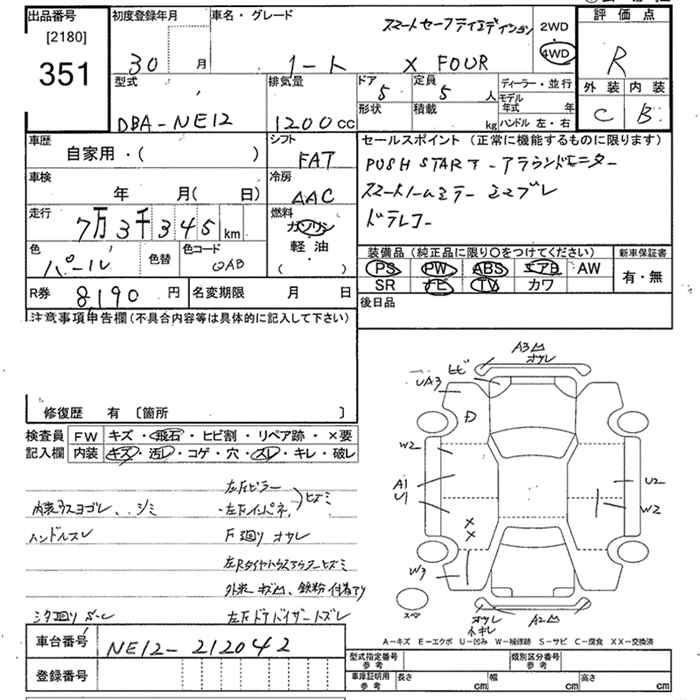 出品番号 初度登録年月 車名・グレード スマートセーフティエディション 2WD 評価点
[2180]
351 30 月 ノート X FOUR 4WD R
型式 排気量 ドア 定員 ディーラー・並行 外装 内装
5 5 人 モデル年式 年
DBA-NE12 1200cc 形状 積載 kg ハンドル 左・右 C B
車歴 シフト セールスポイント(正常に機能するものに限ります)
自家用・( ) FAT PUSH START アラウンドモニター
車検 冷房 スマートルームミラー エマブレ
年 月( 日) AAC ドラレコ
走行 燃料
7万3千345km ガソリン
色 色替 色コード 軽油 装備品(純正品に限り○をつけてください) 新車保証書
パール QAB ・( ) PS PW ABS エアB AW 有・無
R券 8190円 名変期限 月 日 SR ナビ TV カワ
後日品
注意事項申告欄(不具合内容等は具体的に記入して下さい)
修復歴 有 〔箇所 〕
検査員 FW キズ・飛石・ヒビ割・リペア跡・×要
記入欄 内装 キズ・汚レ・コゲ・穴・スレ・キレ・破レ
A3 オサレ
ヒビ
UA3
W2
A1
U1
U2
W2
X
X
W3
スペア
オサレ
A2
左Fピラー
内装ヨゴレ、シミ 左Fインパネ ヒズミ
ハンドルスレ F廻りオサレ
左Rタイヤハウス ヒズミ
鉄粉付着アリ
左Fドアバイザーズレ
A-キズ E-エクボ U-凹み W-補修跡 S-サビ C-腐食 XX-交換済
車台番号 NE12-212042
登録番号 型式指定番号 参考 類別区分番号 参考
車庫証明用 参考 長さ cm 幅 cm 高さ cm